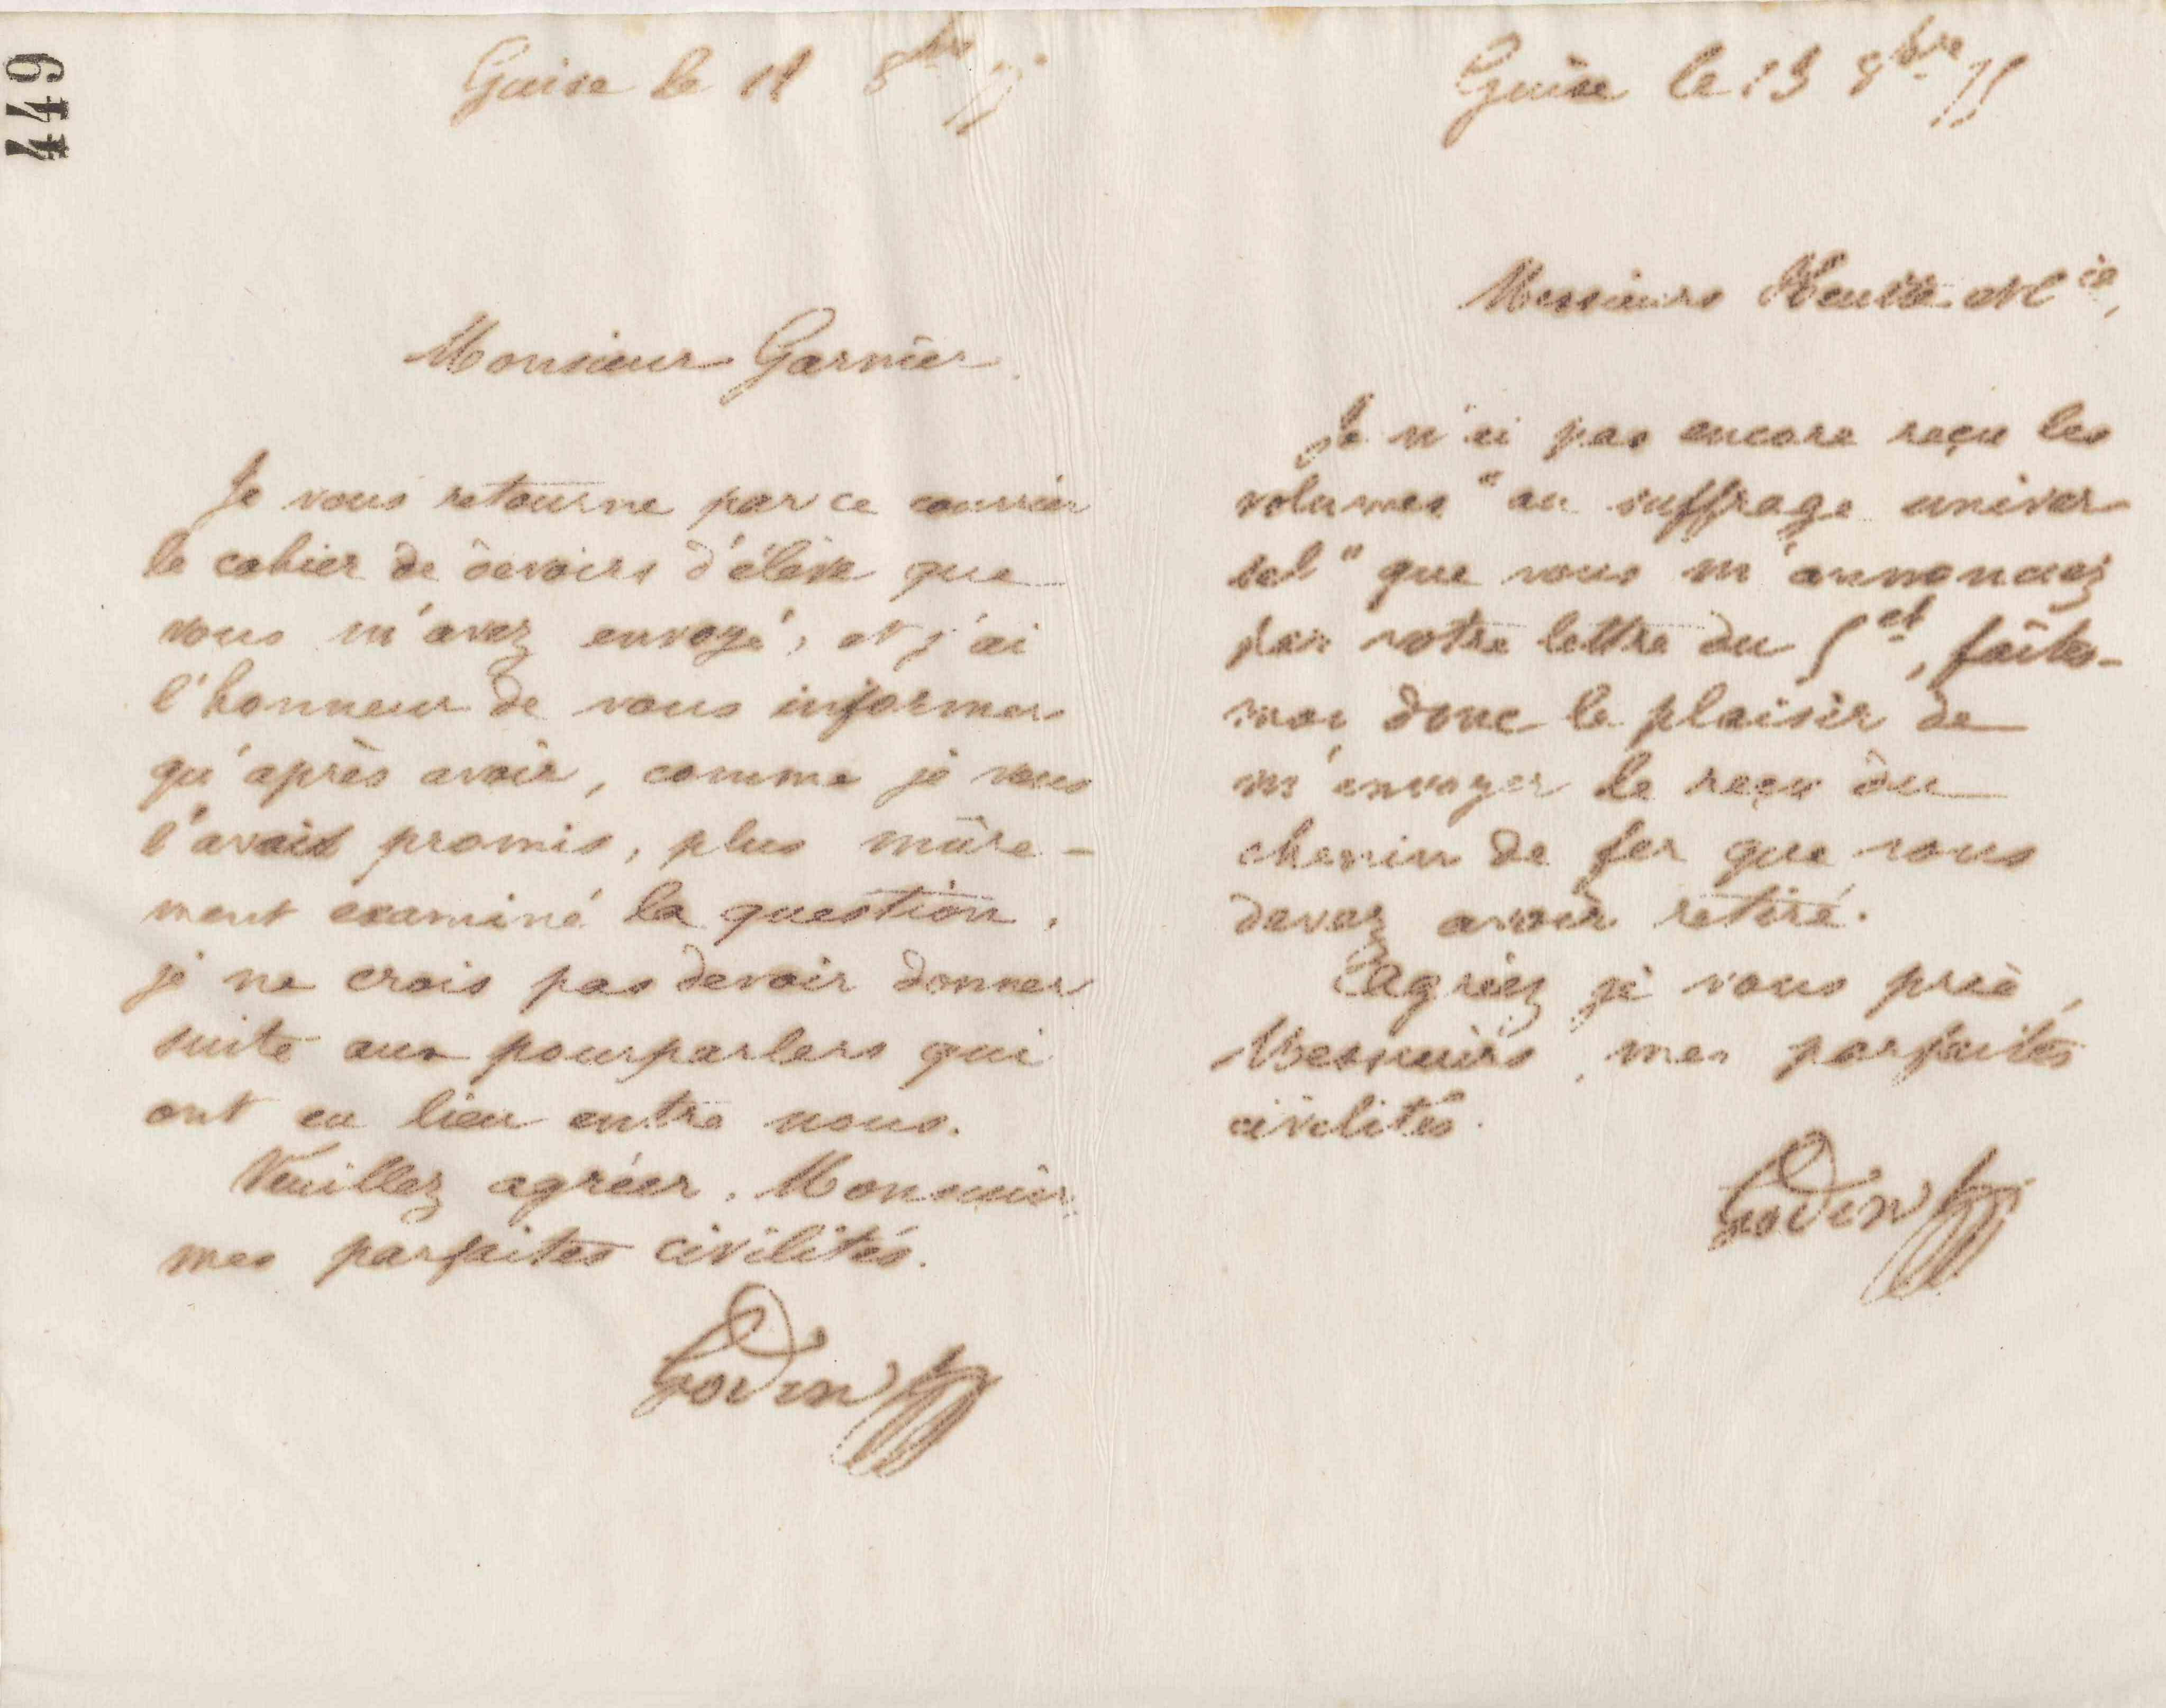 449
Guise le 11 8bre 75
Monsieur Garnier
Je vous retourne par ce courrier
le cahier de devoirs d'élève que
vous m'avez envoyé, et j'ai
l'honneur de vous informer
qu'après avoir, comme je vous
l'avais promis, plus mûre-
ment examiné la question,
je ne crois pas devoir donner
suite aux pourparlers qui
ont eu lieu entre nous.
Veuillez agréer, Monsieur,
mes parfaites civilités.
Godin
Guise le 13 8bre 75
Messieurs et Cie,
Je n'ai pas encore reçu les
volumes "au suffrage univer
sel" que vous m'annoncez
par votre lettre du 5 ct, faites-
moi donc le plaisir de
m'envoyer le reçu du
chemin de fer que vous
devez avoir retiré.
Agréez je vous prie,
Messieurs, mes parfaites
civilités.
Godin